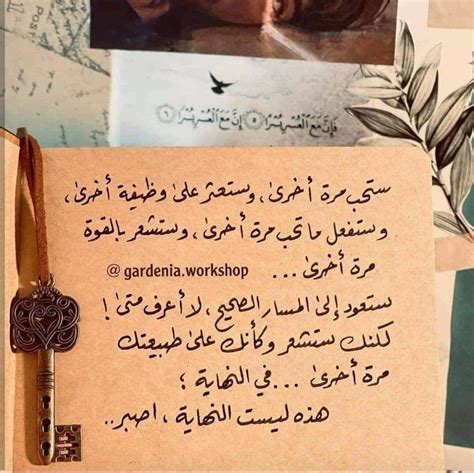 POST
فَإِنَّ مَعَ الْعُسْرِ يُسْرًا ٥ إِنَّ مَعَ الْعُسْرِ يُسْرًا ٦
ستحب مرة أخرى، وستعثر على وظيفة أخرى،
وستفعل ما تحب مرة أخرى، وستشعر بالقوة
مرة أخرى ...
@ gardenia.workshop
ستعود إلى المسار الصحيح، لا أعرف متى!
لكنك ستشعر وكأنك على طبيعتك
مرة أخرى ... في النهاية ؛
هذه ليست النهاية، اصبر..